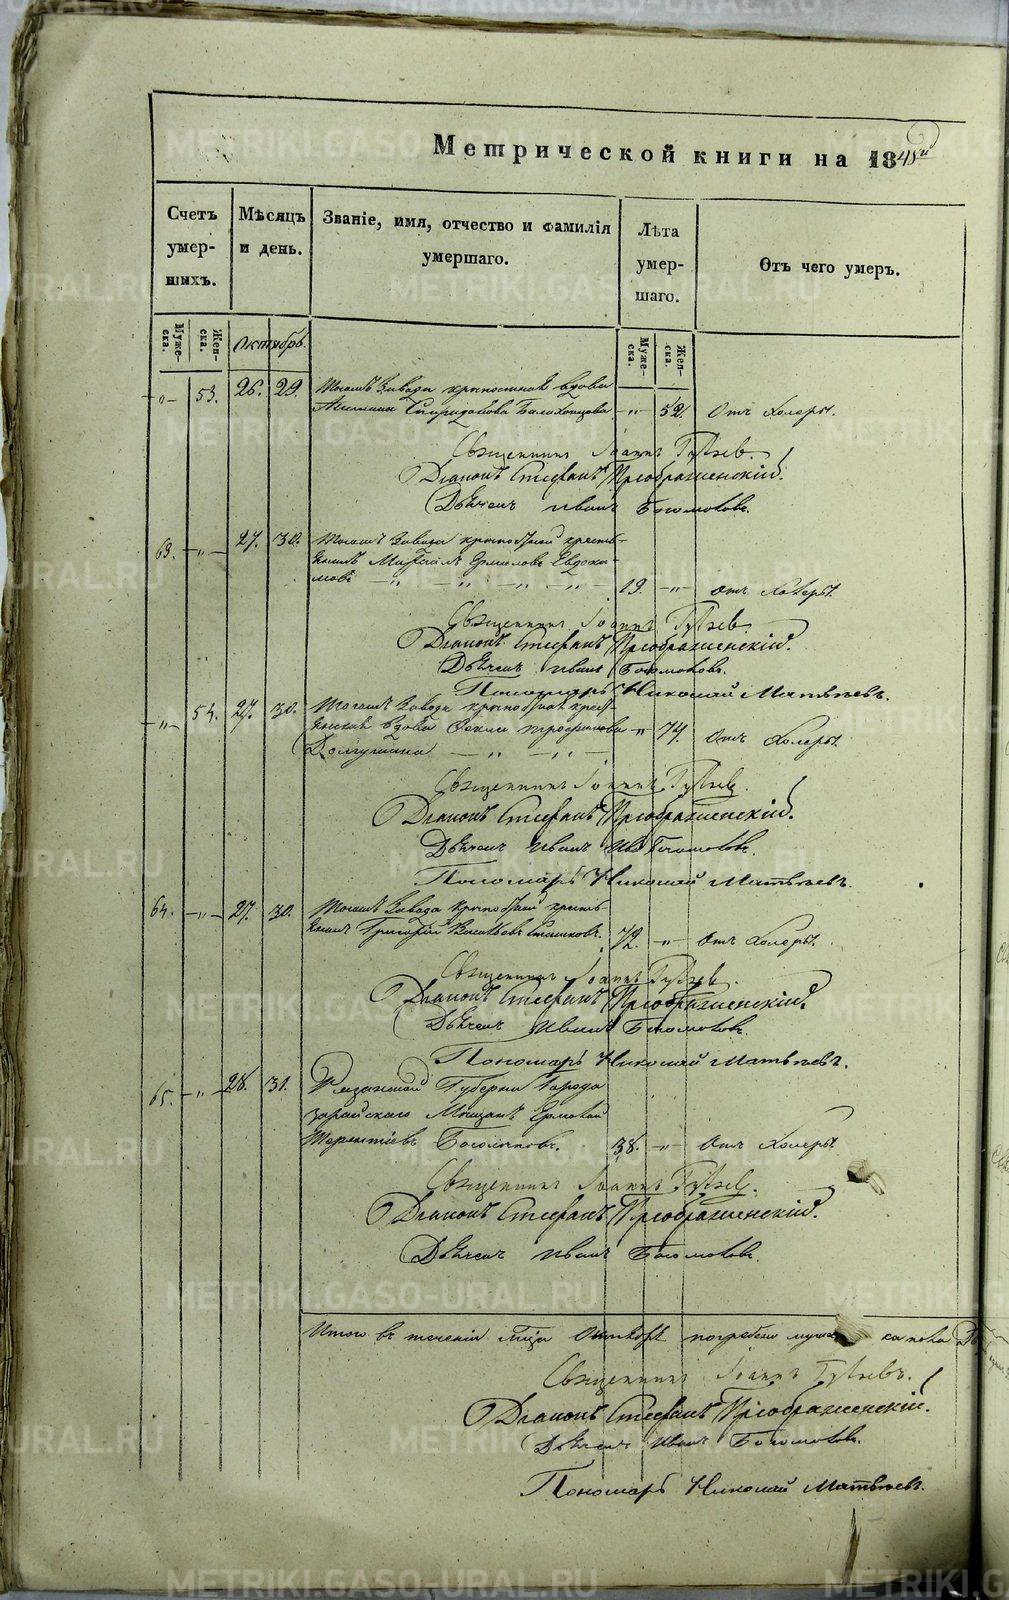 Метрической книги на 1848й
Счетъ умер- шихъ.
Мѣсяцъ и день.
Званіе, имя, отчество и фамилія умершаго.
Лѣта умер- шаго.
Отъ чего умеръ.
Муже- ска.
Жен- ска.
Октябрь.
Муже- ска.
Жен- ска.
-"- 53. 26. 29. Тогожъ Завода крѣпостная вдова
Спиридонова -"- 52. Отъ Холеры.
Священникъ Іоаннъ
Діаконъ Стефанъ Преображенскій.
Дьячекъ Иванъ Богомоловъ.
63. -"- 27. 30. Тогожъ Завода крѣпостной кресть-
янинъ Ермоловъ Евдоки-
мовъ -"- -"- -"- 19. -"- Отъ Холеры.
Священникъ Іоаннъ
Діаконъ Стефанъ Преображенскій.
Дьячекъ Иванъ Богомоловъ.
Пономарь Николай Матвѣевъ.
-"- 54. 27. 30. Тогожъ Завода крѣпостная крест-
янская вдова Трофимова -"- 74. Отъ Холеры.
Долгушина -"- -"-
Священникъ Іоаннъ
Діаконъ Стефанъ Преображенскій.
Дьячекъ Иванъ Богомоловъ.
Пономарь Николай Матвѣевъ.
64. -"- 27. 30. Тогожъ Завода крѣпостной кресть-
янинъ Григорій Васильевъ 72. -"- Отъ Холеры.
Священникъ Іоаннъ
Діаконъ Стефанъ Преображенскій.
Дьячекъ Иванъ Богомоловъ.
Пономарь Николай Матвѣевъ.
65. -"- 28. 31. Рязанской Губерніи Города
Зарайскаго Мещанъ Ермолай
Терентіевъ 38. -"- Отъ Холеры.
Священникъ Іоаннъ
Діаконъ Стефанъ Преображенскій.
Дьячекъ Иванъ Богомоловъ.
Итого въ теченіи м-ца Октября погребено
Священникъ Іоаннъ
Діаконъ Стефанъ Преображенскій.
Дьячекъ Иванъ Богомоловъ.
Пономарь Николай Матвѣевъ.
METRIKI.GASO-URAL.RU